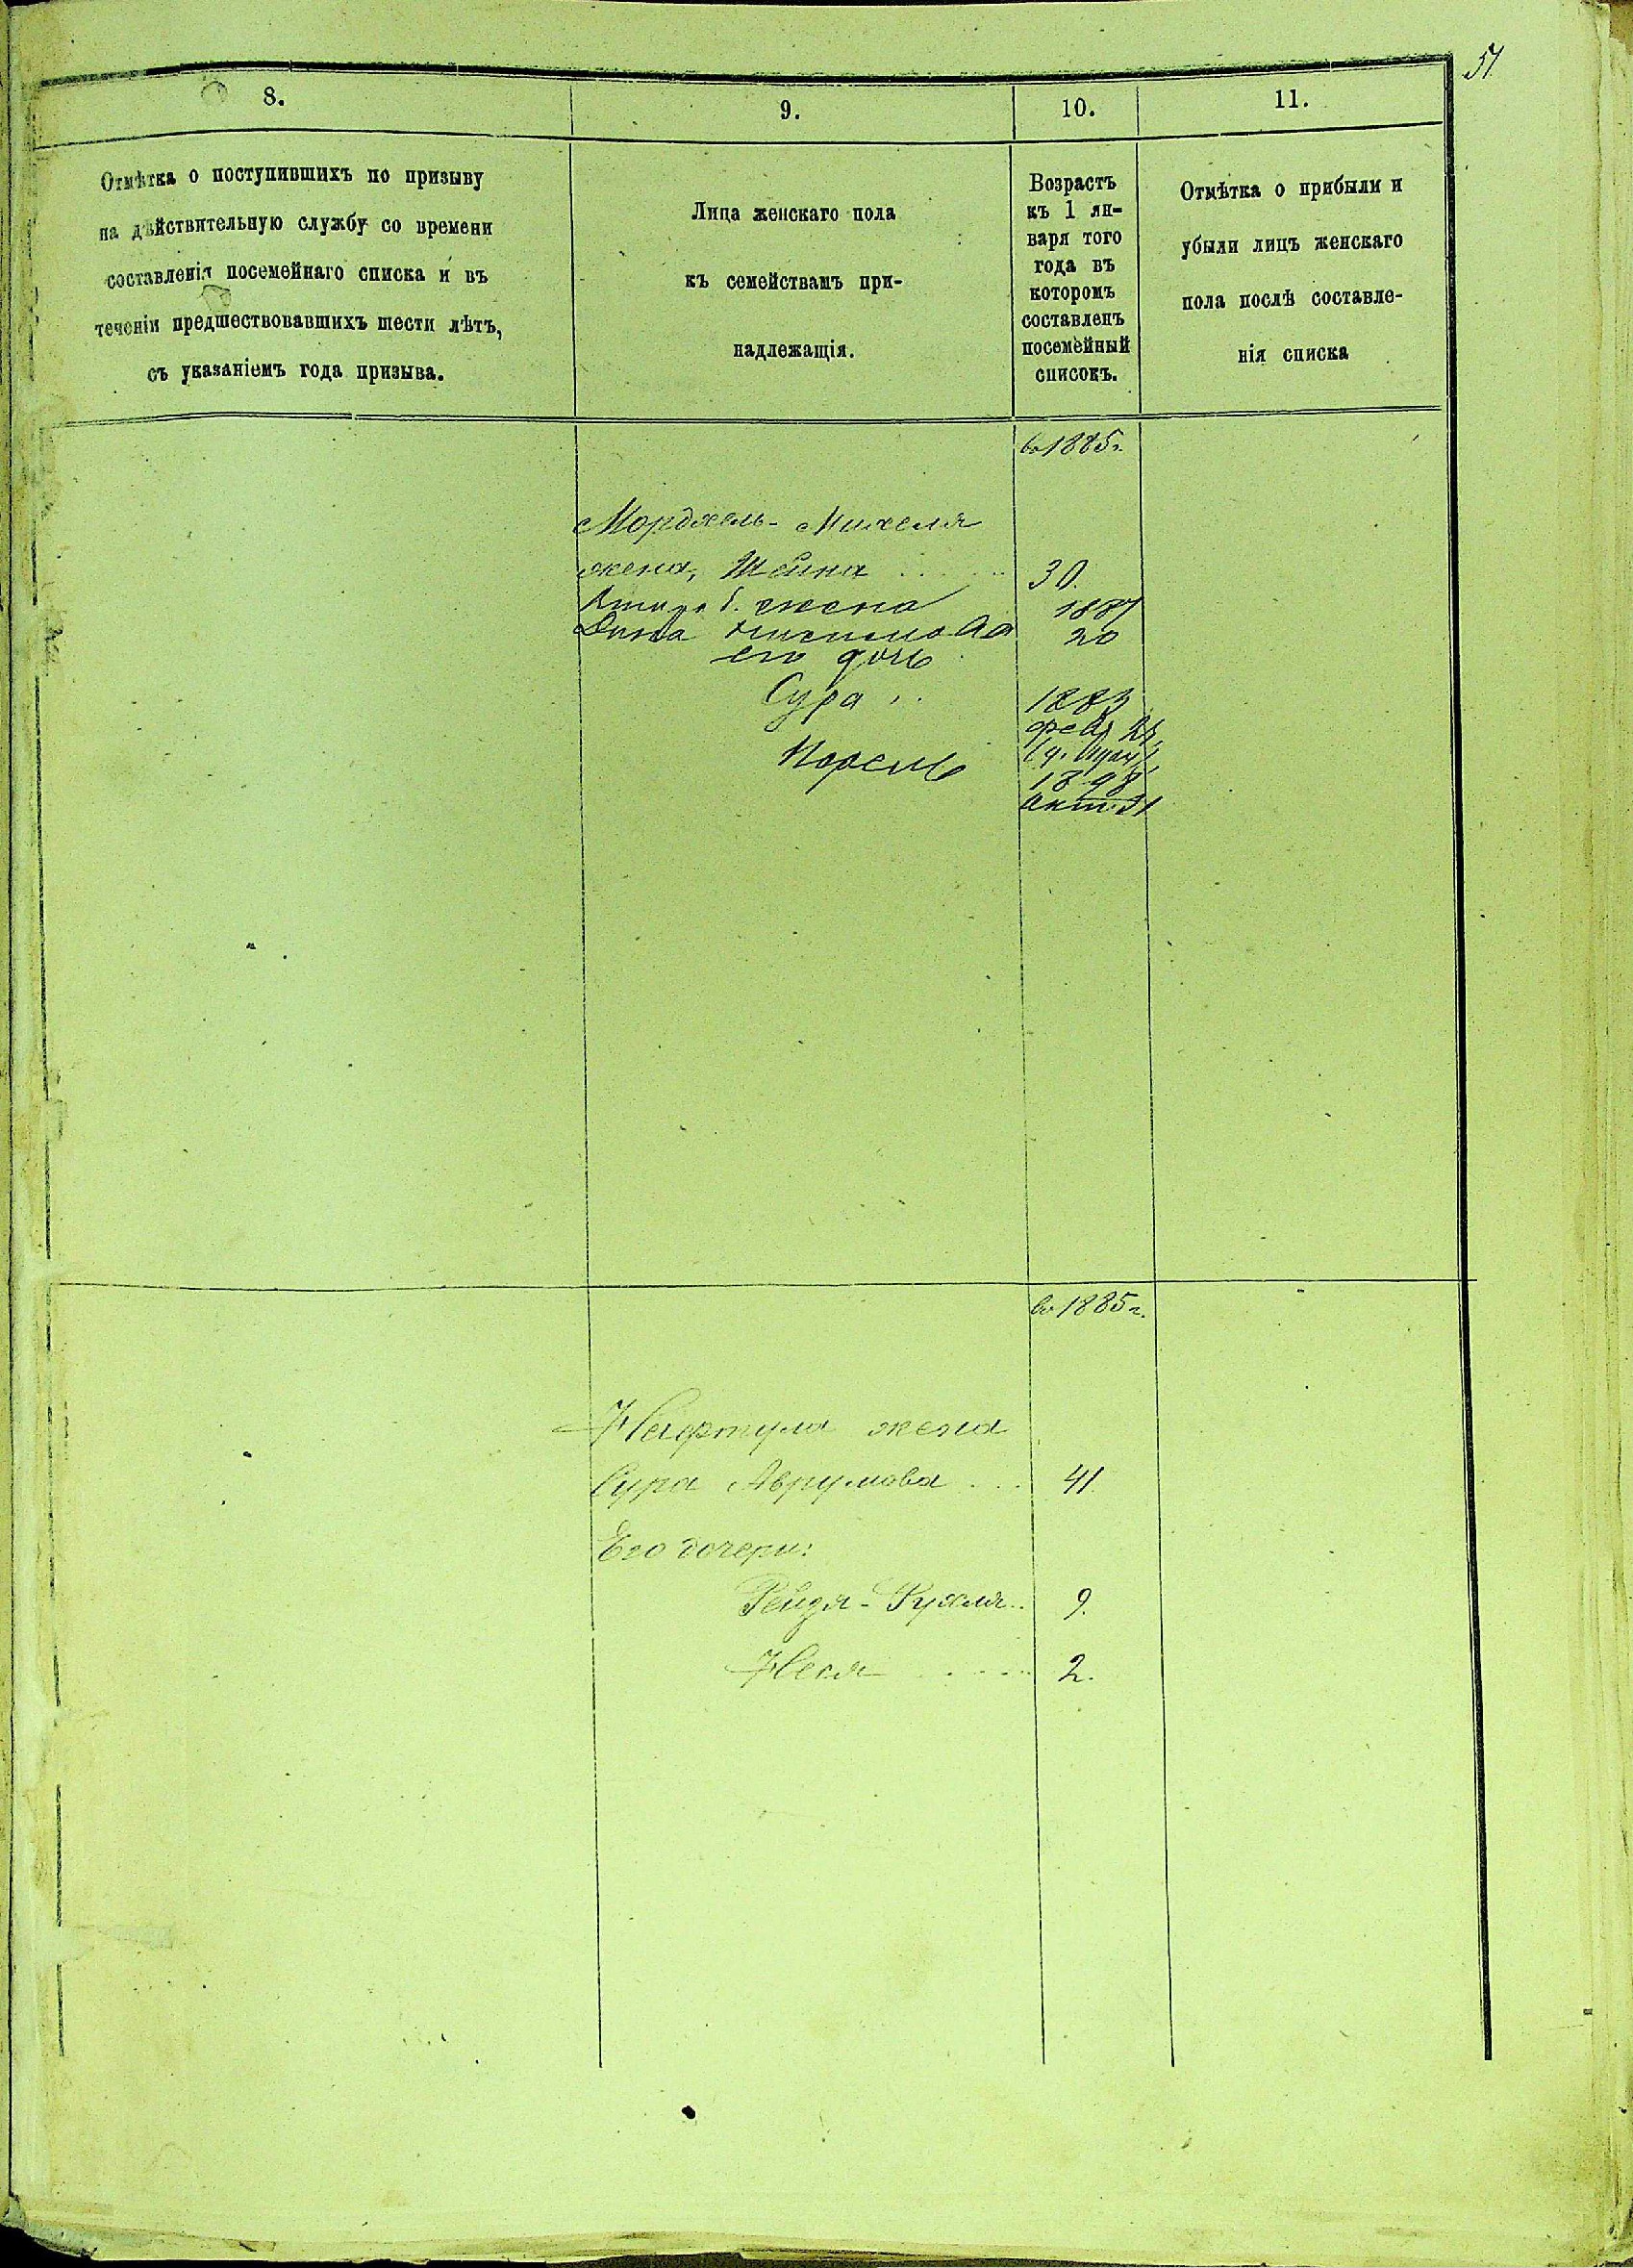 51
8.
9.
10.
11.
Отмѣтка о поступившихъ по призыву
на дѣйствительную службу со времени
составленія посемейнаго списка и въ
теченіи предшествовавшихъ шести лѣтъ,
съ указаніемъ года призыва.
Лица женскаго пола
къ семействамъ при-
надлежащія.
Возрастъ
къ 1 ян-
варя того
года въ
которомъ
составленъ
посемейный
списокъ.
Отмѣтка о прибыли и
убыли лицъ женскаго
пола послѣ составле-
нія списка
въ 1885 г.
Мордхель-Михеля
жена, Шейна 30.
жена 1887
20
его дочь
Сура 1883
фев
1898
Окт. 31
въ 1885 г.
Нафтула жена
Сура Аврумова 41.
Его дочери:
Рейзя-Рухля 9.
Неся 2.